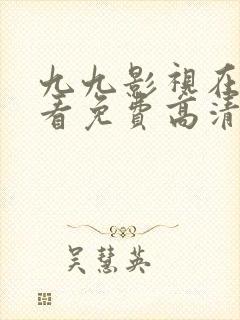 九九影視在
看免費高清
吴慧英